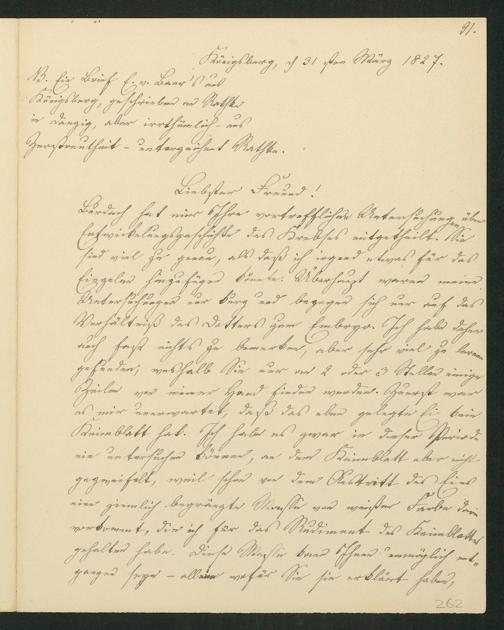 91.
Königsberg, d 31 sten März 1827.
NB. Ein Brief E. v. Baer's aus
Königsberg, geschrieben an Rathke
in Danzig, aber irrthümlich – aus
Zerstreutheit – unterzeichnet Rathke.
Liebster Freund!
Burdach hat mir Ihre vortrefflichen Untersuchungen über
Entwickelungsgeschichte des Krebses mitgetheilt. Sie
sind viel zu genau, als daß ich irgend etwas für das
Einzelne hinzufügen könnte. Überhaupt waren meine
Untersuchungen nur kurz und bezogen sich nur auf das
Verhältniß des Dotters zum Embryo. Ich habe daher
auch fast nichts zu bemerken, aber sehr viel zu lernen
gefunden, weshalb Sie nur an 2 oder 3 Stellen einige
Zeilen von meiner Hand finden werden. Zuerst war
es mir unerwartet, daß das eben gelegte Ei kein
Keimblatt hat. Ich habe es zwar in dieser Periode
nie untersuchen können, an dem Keimblatt aber nicht
gezweifelt, weil schon vor dem Austritt des Eies
eine ziemlich begränzte Masse von weißer Farbe darin
vorkommt, die ich für das Rudiment des Keimblattes
gehalten habe. Diese Masse kann Ihnen unmöglich ent-
gangen seyn – allein wofür Sie sie erklärt haben,
262